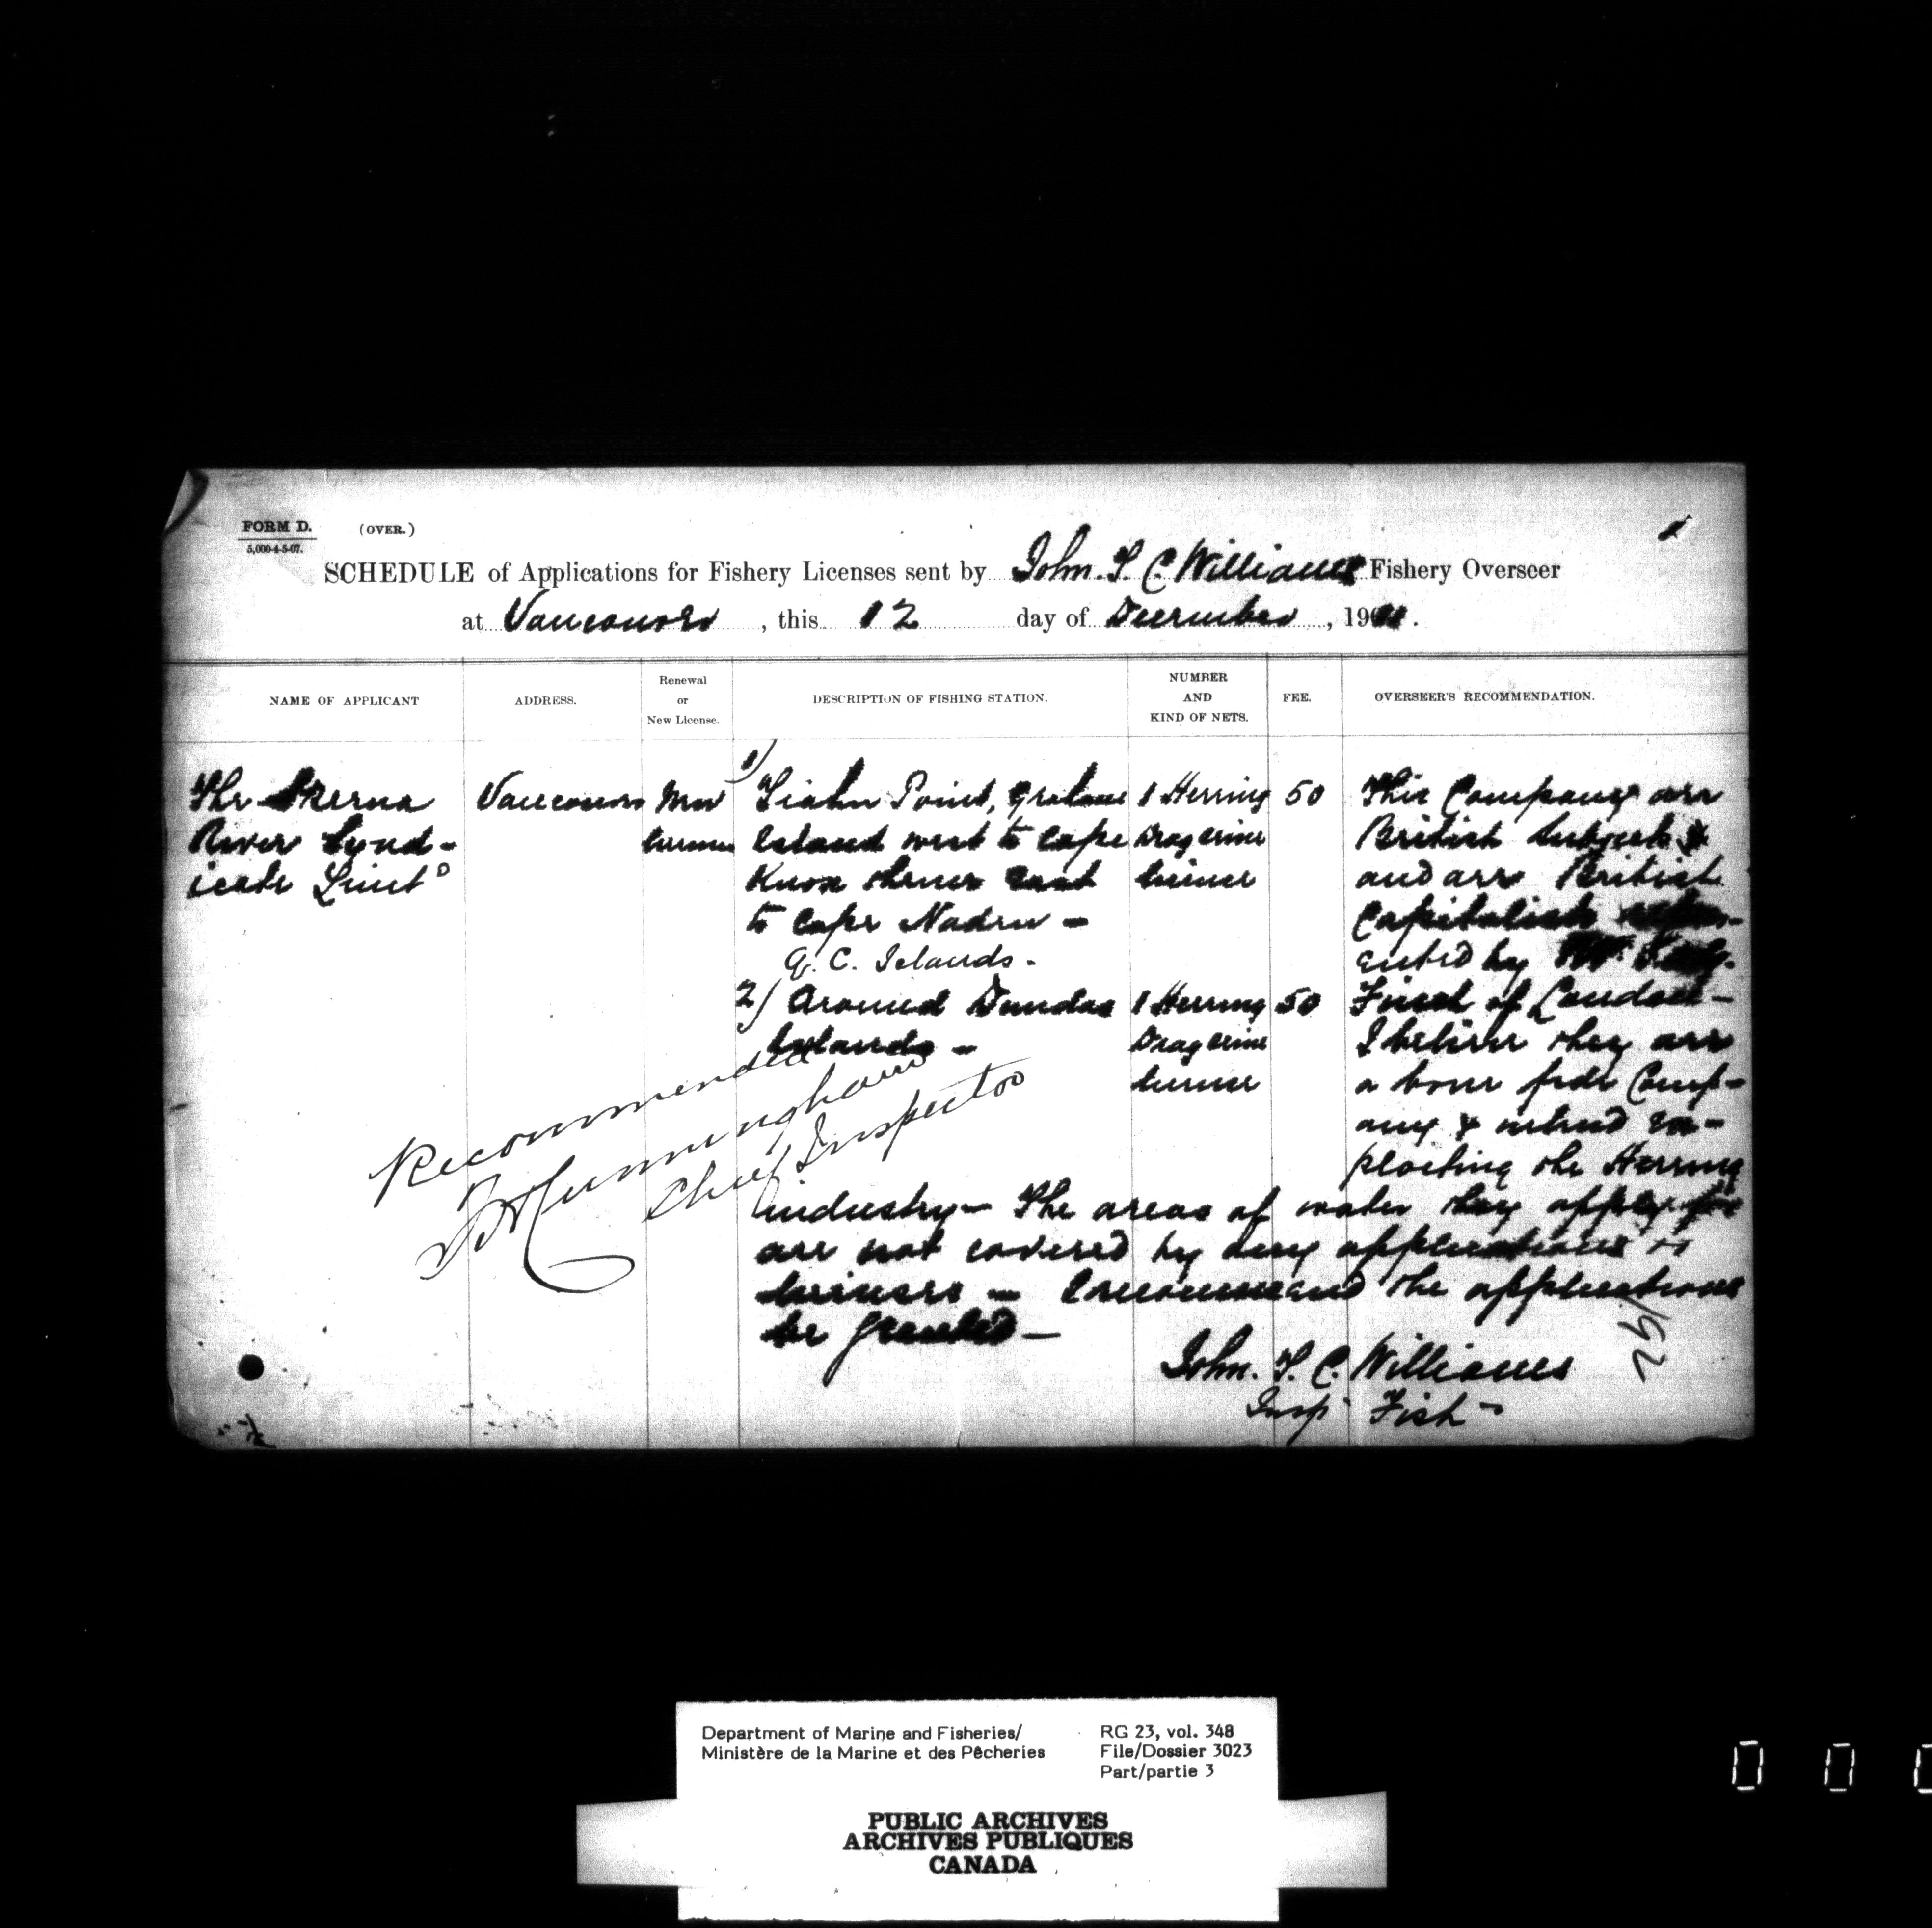 FORM D. (OVER.)
5,000-4-5-07.
SCHEDULE of Applications for Fishery Licenses sent by John. T. C. Williams Fishery Overseer
at Vancouver, this 12 day of December, 1911.
NAME OF APPLICANT
ADDRESS.
Renewal
or
New License.
DESCRIPTION OF FISHING STATION.
NUMBER
AND
KIND OF NETS.
FEE.
OVERSEER'S RECOMMENDATION.
The Skeena
River Synd-
icate Limtd
Vancouver
New
license
1) Tiahn Point, Graham
Island west to Cape
Knox thence East
to Cape Naden -
Q. C. Islands.
1 Herring
Drag seine
license
50
2) Around Dundas
Islands -
1 Herring
Drag seine
license
50
This Company are
British subjects &
and are British
Capitalists
ented by Mr
Finch of London -
I believe they are
a bona fide Comp-
any & intend ex-
ploiting the Herring
industry - The areas of water they apply for
are not covered by any applications or
licenses - I recommend the applications
be granted -
John. T. C. Williams
Insp Fish -
Recommended
Cunningham
Chief Inspector
192
Department of Marine and Fisheries/
Ministère de la Marine et des Pêcheries
RG 23, vol. 348
File/Dossier 3023
Part/partie 3
PUBLIC ARCHIVES
ARCHIVES PUBLIQUES
CANADA
0 0 0